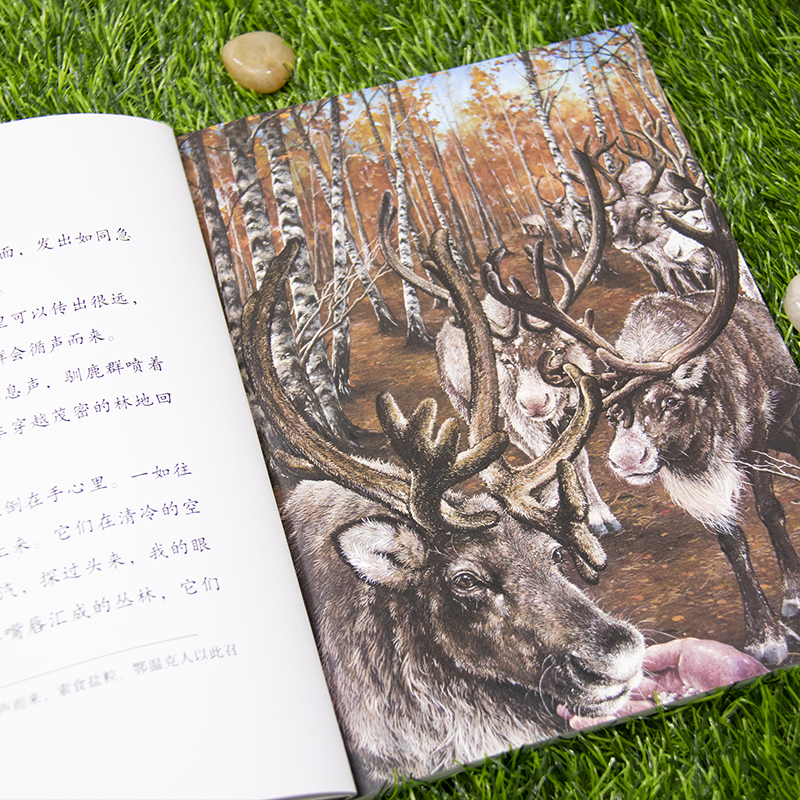 而，发出如同急
。
里可以传出很远，
群会循声而来。
息声，驯鹿群喷着
穿越茂密的林地回
倒在手心里。一如往
上来。它们在清冷的空
汽，探过头来，我的眼
嘴唇汇成的丛林，它们
声而来，索食盐粒。鄂温克人以此召